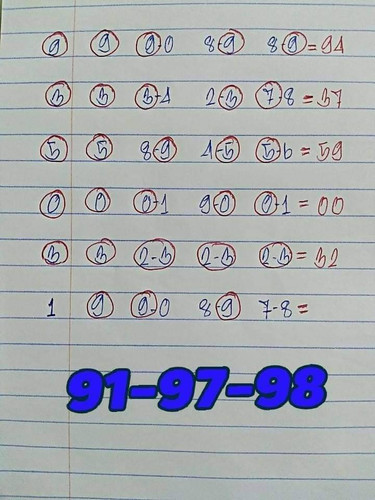 9 9 9-0 8-9 8-9 = 94
3 3 3-4 2-3 7-8 = 37
5 5 8-9 4-5 5-6 = 59
0 0 0-1 9-0 0-1 = 00
3 3 2-3 2-3 2-3 = 32
1 9 9-0 8-9 7-8 =
91-97-98